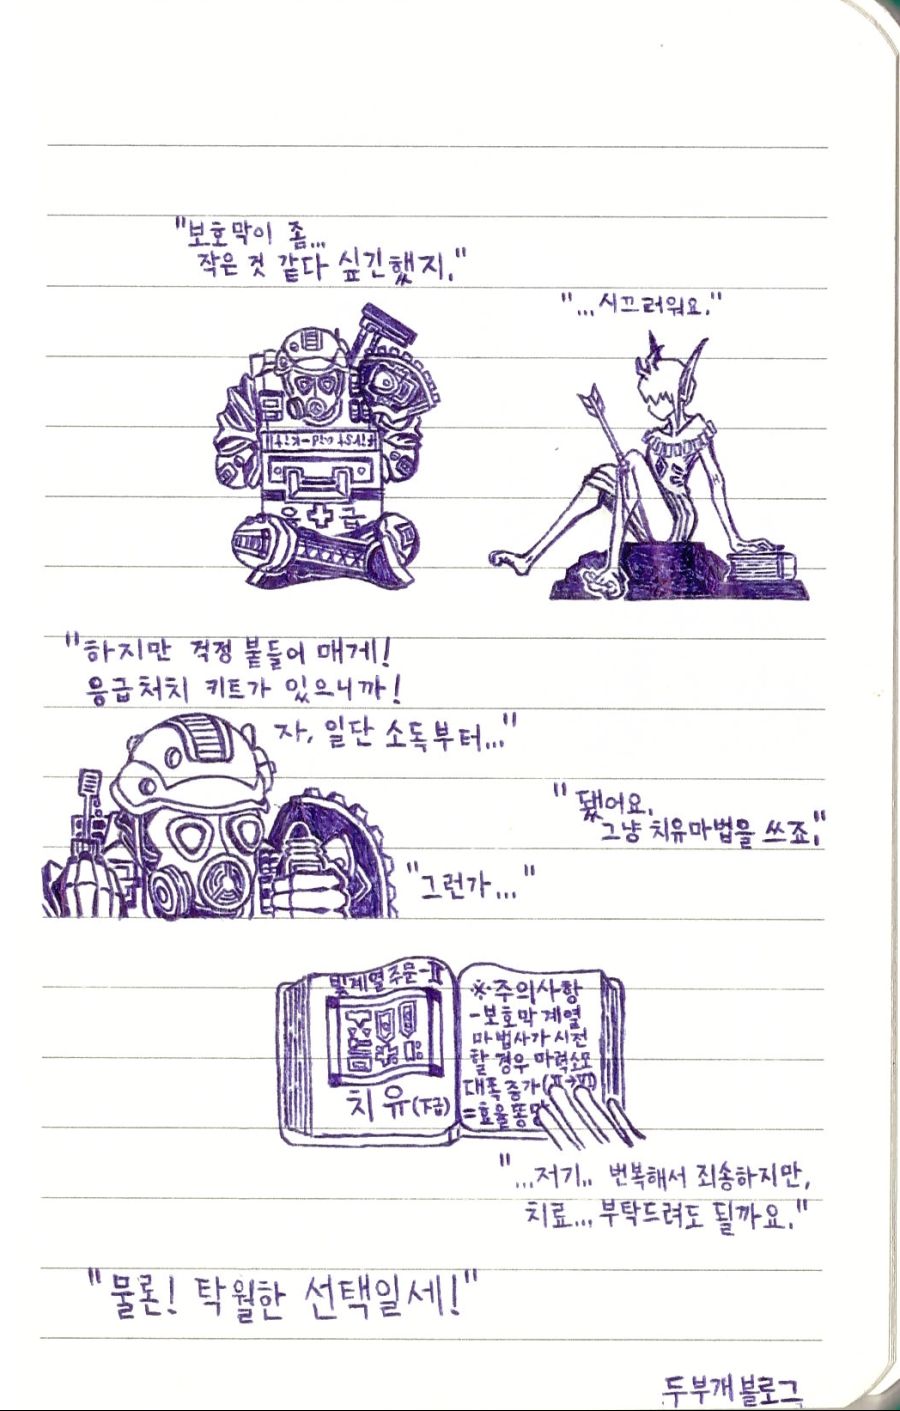 "보호막이 좀...
작은 것 같다 싶긴했지."
"...시끄러워요."
first aid-kit
응급
"하지만 걱정 붙들어 매게!
응급처치 키트가 있으니까!
자, 일단 소독부터..."
"됐어요.
그냥 치유마법을 쓰죠."
"그런가..."
빛계열주문-II
치유(下급)
※주의사항
-보호막 계열
마법사가 시전
할 경우 마력소모
대폭증가(II→VI)
=효율똥망
"...저기.. 번복해서 죄송하지만,
치료... 부탁드려도 될까요."
"물론! 탁월한 선택일세!"
두부개블로그